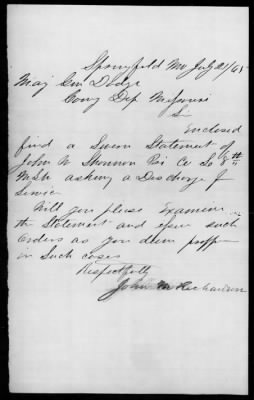 Springfield Mo July 21/65
Maj Gen Dodge
Comg Dep Missouri
Sir
Enclosed
find a Sworn Statement of
John W Shannon Co 8th
asking a Discharge
Service
Will you please Examine
the Statement and issue such
orders as you deem proper
in such cases
Respectfully
John M Richardson